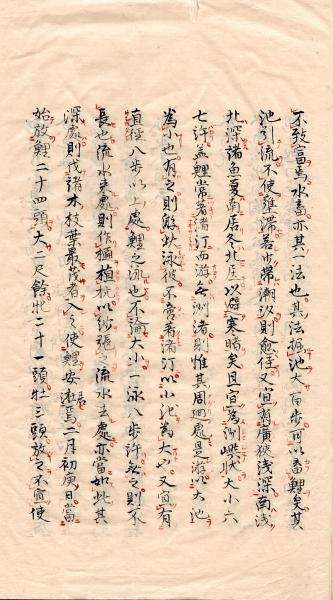 不致富焉水畜亦其一法也其法掘池大百步可以畜鯉矣其
池引流不使壅滞若少帶潮汐則愈佳又宜有廣狹浅深南浅
北深諸魚夏南居冬北居以避寒暗矣且宜為洲嶼状大小六
七許盖鯉常著渚汀而游無洲渚則惟其周廻處是游以大池
為小也有之則游此泳彼不啻著渚汀以小池為大也又宜有
直徑八步以上處鯉之泳也不論大小一泳八步許無之則不
長也流水来處則作柵植杭以沙張之流水去處亦當如此其
深處則伐諸木枝葉最茂者入之使鯉安湛居焉二月初庚日當
始放鯉二十四頭大二尺餘牝二十一頭牡三頭放之不宜使